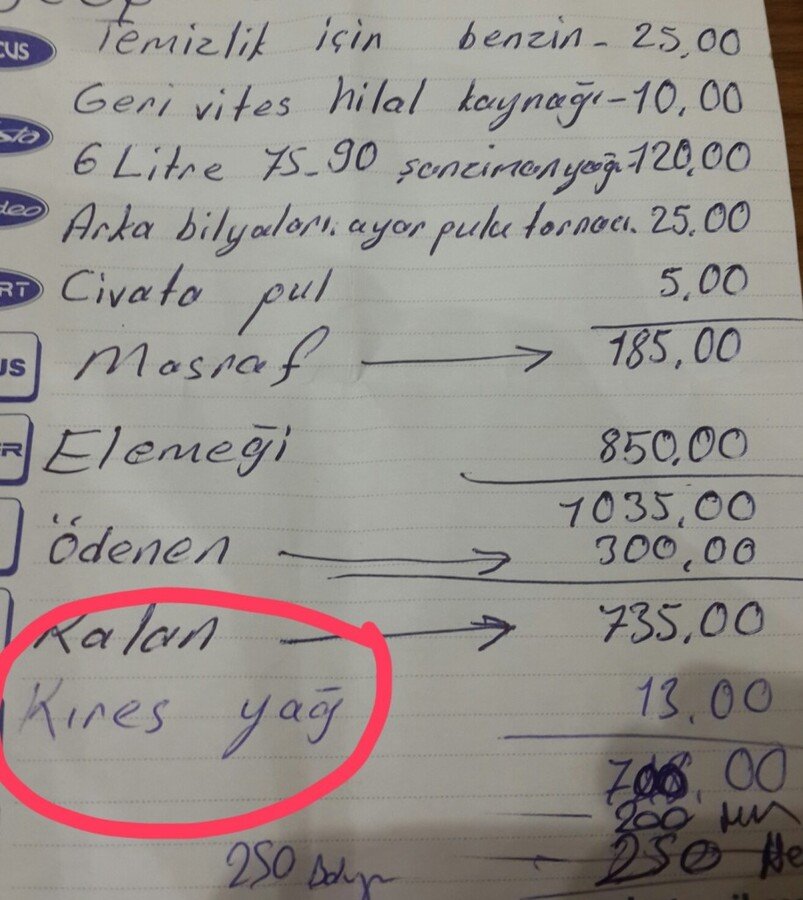 CUS
Temizlik için benzin - 25,00
Geri vites hilal kaynağı - 10,00
6 Litre 75-90 şanzimanyağı - 120,00
Arka bilyaları. ayar pulu tornacı. 25.00
RT
Civata pul 5,00
US
Masraf → 185,00
Elemeği 850,00
1035,00
Ödenen → 300,00
Kalan → 735,00
Kıres yağ 13,00
,00
200
250 250